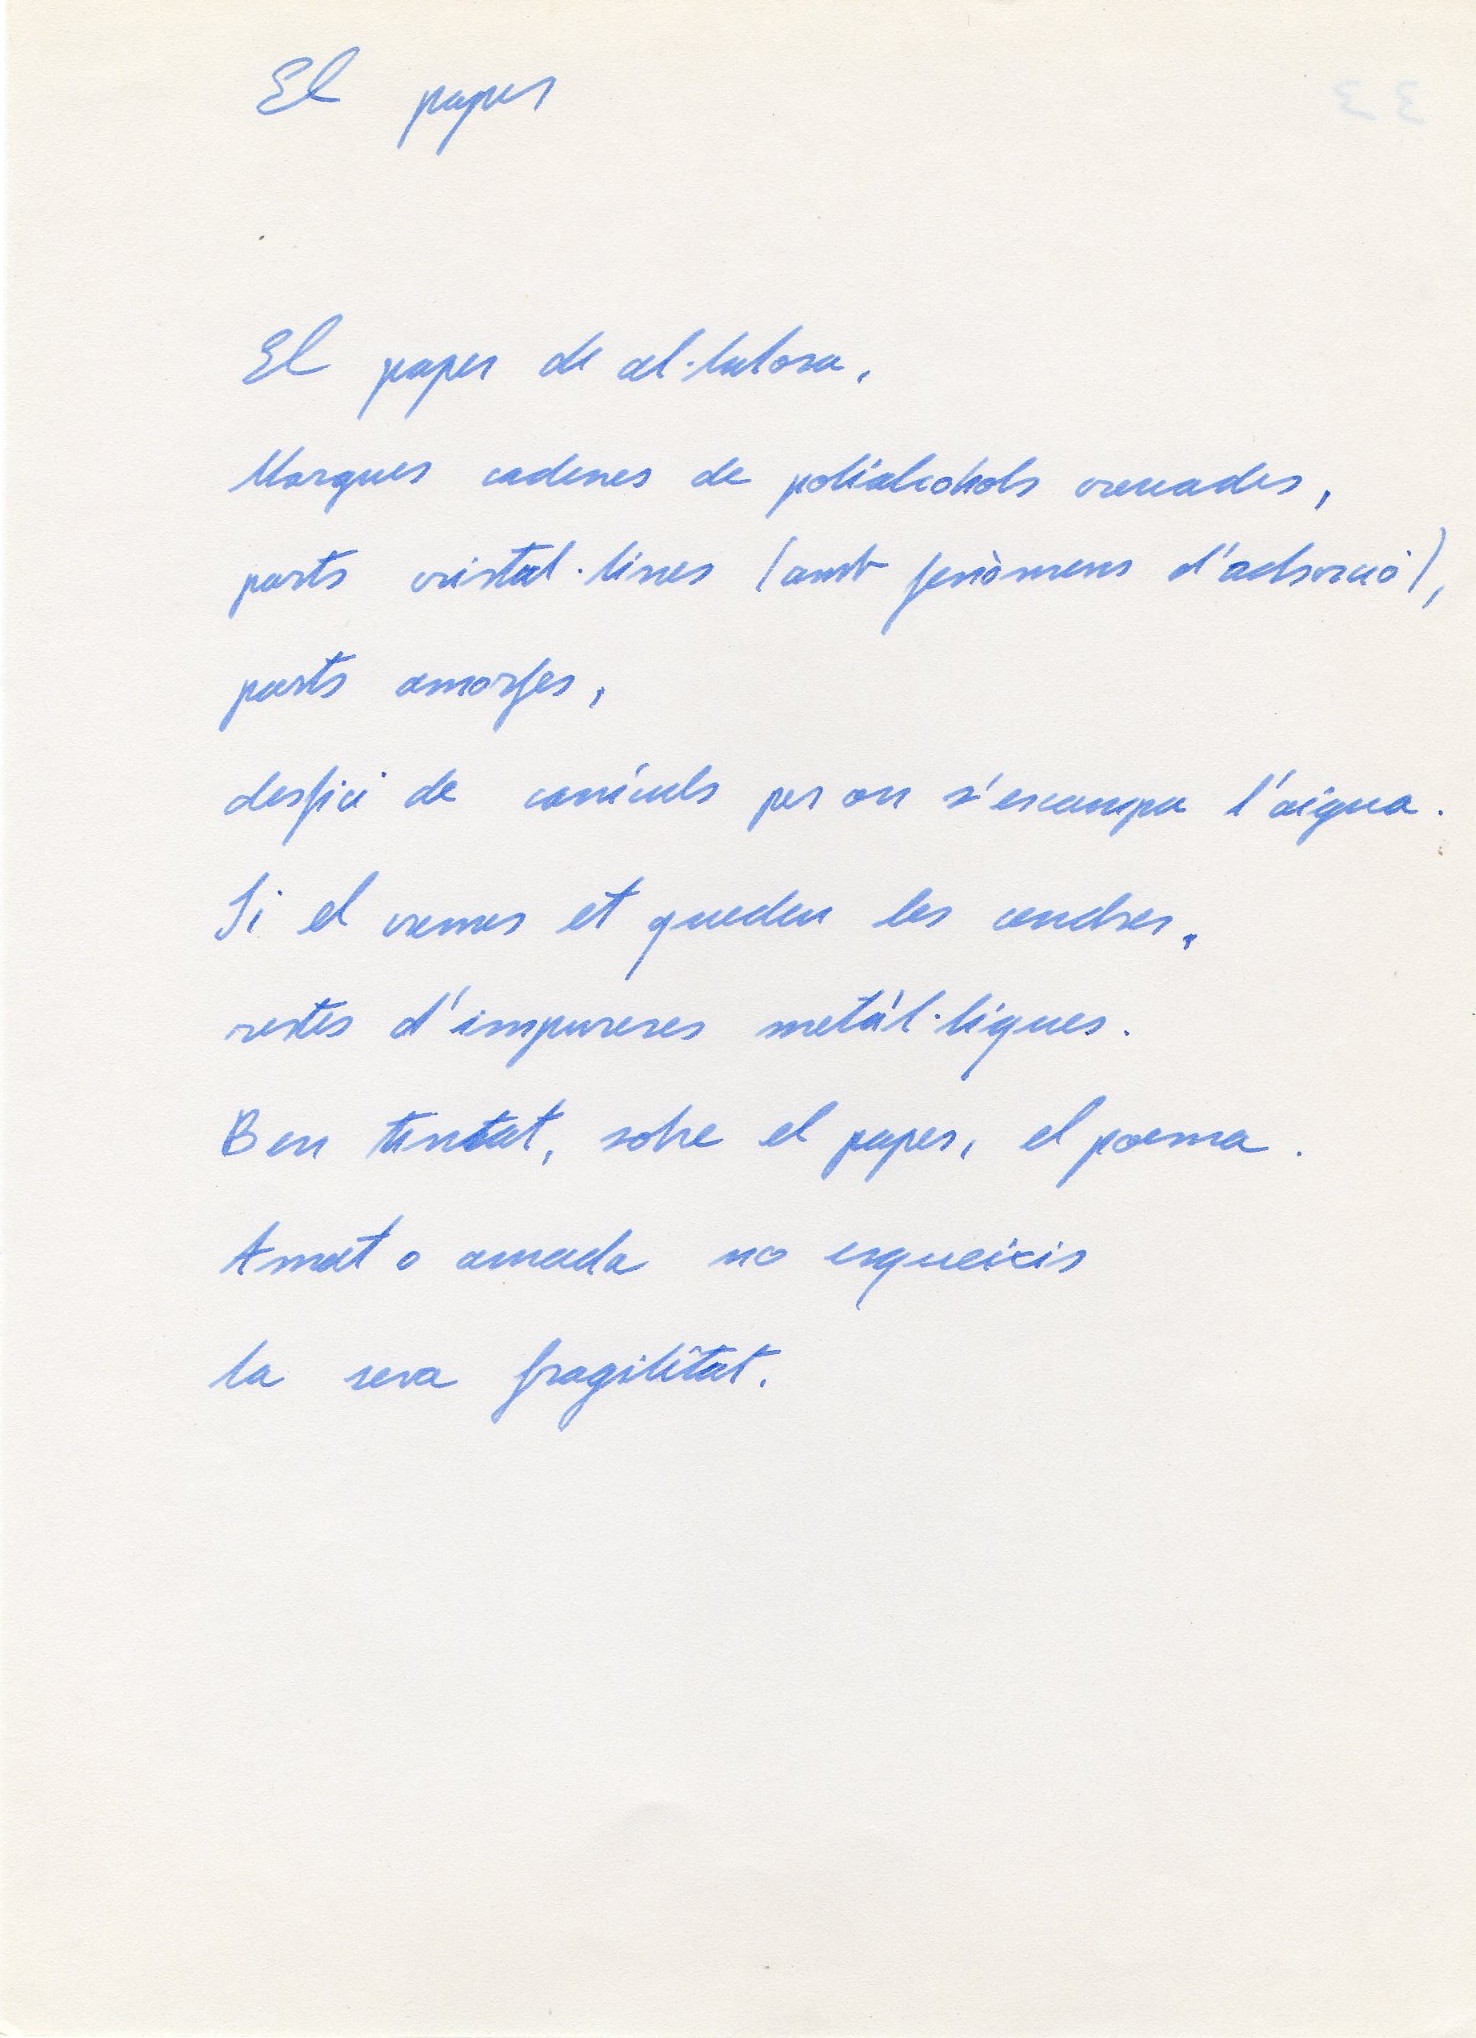 El paper
El paper de cel·lulosa,
llargues cadenes de polialcohols creuades,
parts cristal·lines (amb fenòmens d'adsorció),
parts amorfes,
desfici de canículs per on s'escampa l'aigua.
Si el cremes et queden les cendres,
restes d'impureres metàl·liques.
Ben tintat, sobre el paper, el poema.
Amat o amada no esqueixis
la seva fragilitat.